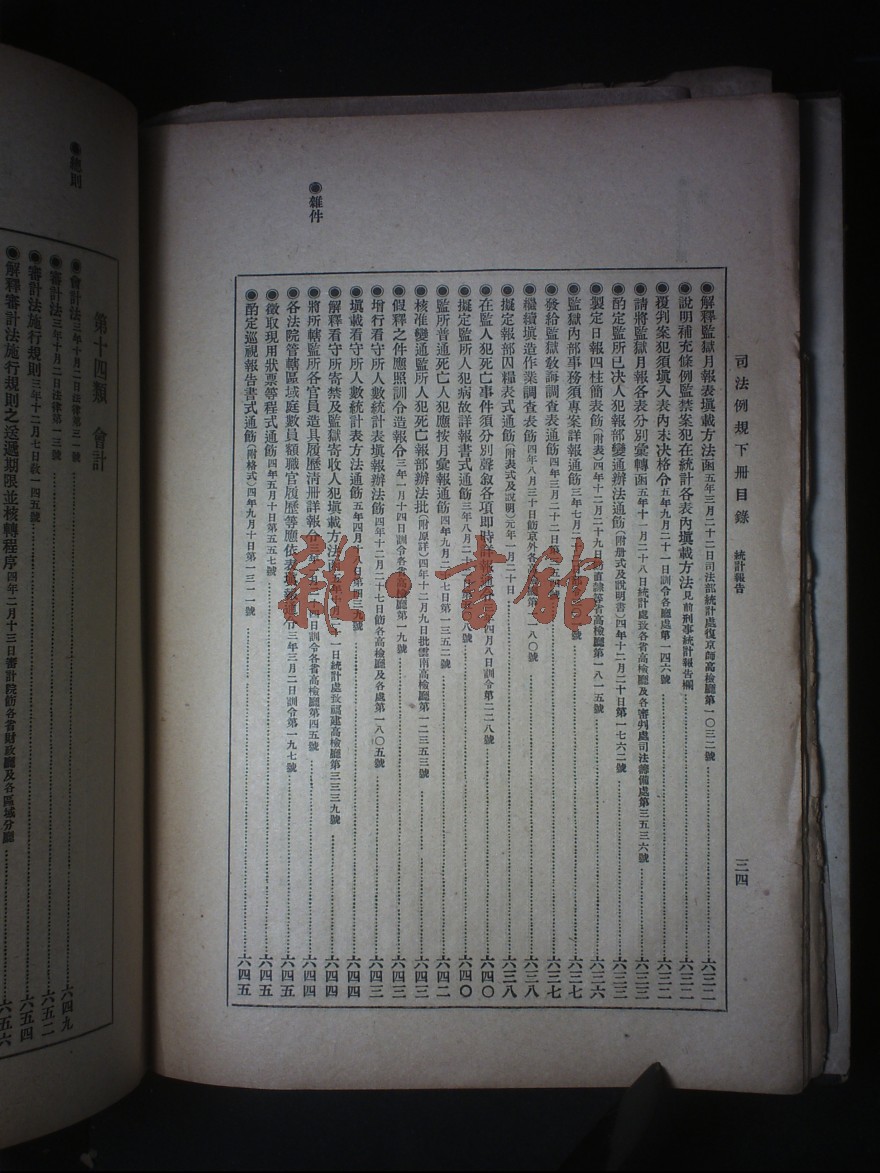 司法例規下冊目錄 統計報告 三四
◉解釋監獄月報表填載方法函五年三月二十二日司法部統計處復京師高檢廳第一〇三二號 六二二
◉說明補充條例監禁案犯在統計各表內填載方法見前刑事統計報告欄 六二二
◉覆判案犯須填入表內未決格令五年九月二十一日訓令各廳處第一四六號 六二二
◉請將監獄月報各表分別彙轉函五年十一月二十八日統計處致各省高檢廳及各審判處司法籌備處第三五三六號 六二三
◉酌定監所已决人犯報部變通辦法通飭(附册式及說明書)四年十二月二十日第一七六二號 六二三
◉製定日報四柱簡表飭(附表式)四年十二月二十九日直隸等省高檢廳第一八一五號 六二六
◉監獄內部事務須專案詳報通飭三年七月二十 六二七
◉發給監獄敎誨調查表飭四年三月二十二日第 五四 六二七
◉繼續填造作業調查表飭四年八月三十日飭京外各高 一八〇號 六三八
◉擬定報部囚糧表式通飭(附表式及說明)元年一月二十日 六三八
◉在監人犯死亡事件須分別聲敘各項即時詳報通 四月八日訓令第二二八號 六四〇
◉擬定監所人犯病故詳報書式通飭三年八月二十 八號 六四〇
◉監所普通死亡人犯應按月彙報通飭四年九月二十七日第一三五二號 六四二
◉核准變通監所人犯死亡報部辦法批(附原詳)四年十二月九日批雲南高檢廳第一二三五三號 六四三
◉假釋之件應照訓令造報令三年一月十四日訓令各省高檢廳第一九號 六四三
◉增行看守所人數統計表填報辦法飭四年十二月二十七日飭各高檢廳及各處第一八〇五號 六四三
◉填載看守所人數統計表方法通飭五年四月十八日第明三九號 六四四
◉解釋看守所寄禁及監獄寄收人犯填載方法函 年 月二十一日統計處致福建高檢廳第三三三九號 六四四
◉將所轄監所各官員造具履歷清册詳報令三年九月 四日訓令各省高檢廳第四五號 六四四
◉雜件
◉各法院管轄區域庭數員額職官履歷等應依表填報通令三年三月二日訓令第一九七號 六四五
◉徵取現用狀票等程式通飭四年五月十七日第五五七號 六四五
◉酌定巡視報告書式通飭(附格式)四年九月十日第一三一一號 六四五
第十四類 會計
◉總則
◉會計法三年十月二日法律第三一號 六四九
◉審計法三年十月二日法律第一三號 六五二
◉審計法施行規則三年十二月七日敎一四五號 六五四
◉解釋審計法施行規則之送遞期限並核轉程序四年二月十三日審計院飭各省財政廳及各區域分廳 六五六
雜·書館